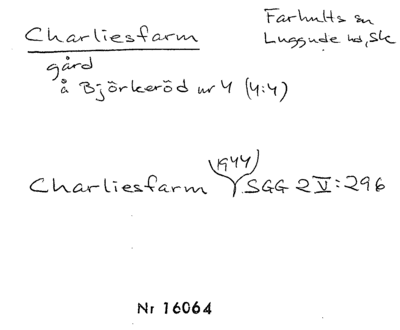 Charliesfarm
Farhults sn
Luggude hd, Sk
gård
å Björkeröd nr 4 (4:4)
1944
Charliesfarm SGG 2 V:296
Nr 16064